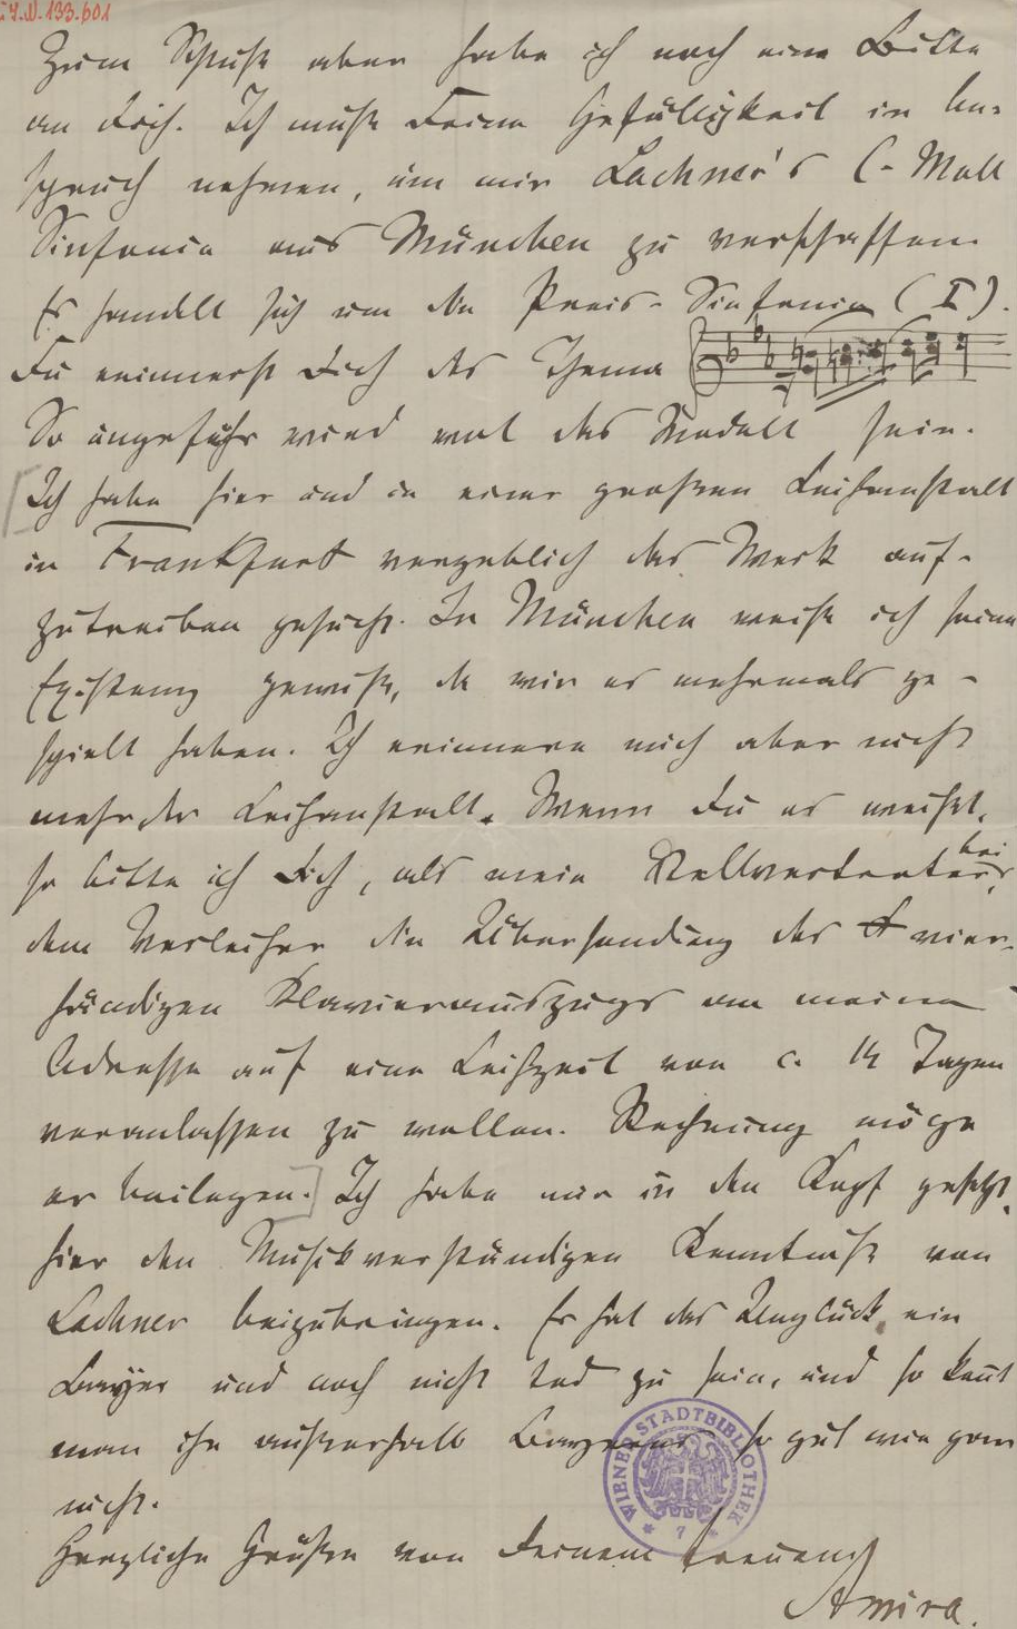 I.N. 133.601
Zum Schluß aber habe ich noch eine Bitte
an Dich. Ich muß Deine Gefälligkeit in An-
spruch nehmen, um mir Lachner's C-Moll
Sinfonie aus München zu verschaffen.
Es handelt sich um die Preis-Sinfonie (I).
Du erinnerst Dich des Thema
So ungefähr wird wol das Skelett sein.
Ich habe hier und in einer großen Leihanstalt
in Frankfurt vergeblich das Werk auf-
zutreiben gesucht. In München weiß ich seine
Existenz gewiß, da wir es mehrmals ge-
spielt haben. Ich erinnere mich aber nicht
mehr der Leihanstalt. Wenn Du es weißt,
so bitte ich Dich, als mein Stellvertreter bei
dem Verleiher die Übersendung des vier-
händigen Klavierauszugs an meine
Adresse auf eine Leihzeit von c. 14 Tagen
veranlassen zu wollen. Rechnung möge
er beilegen. Ich habe mir in den Kopf gesetzt,
hier den Musikverständigen Kenntniß von
Lachner beizubringen. Er hat das Unglück, ein
Bayer und noch nicht tod zu sein, und so kennt
man ihn außerhalb Bayerns so gut wie gar
nicht.
WIENER STADTBIBLIOTHEK
* 7 *
Herzliche Grüße von Deinem treuen
Amira.